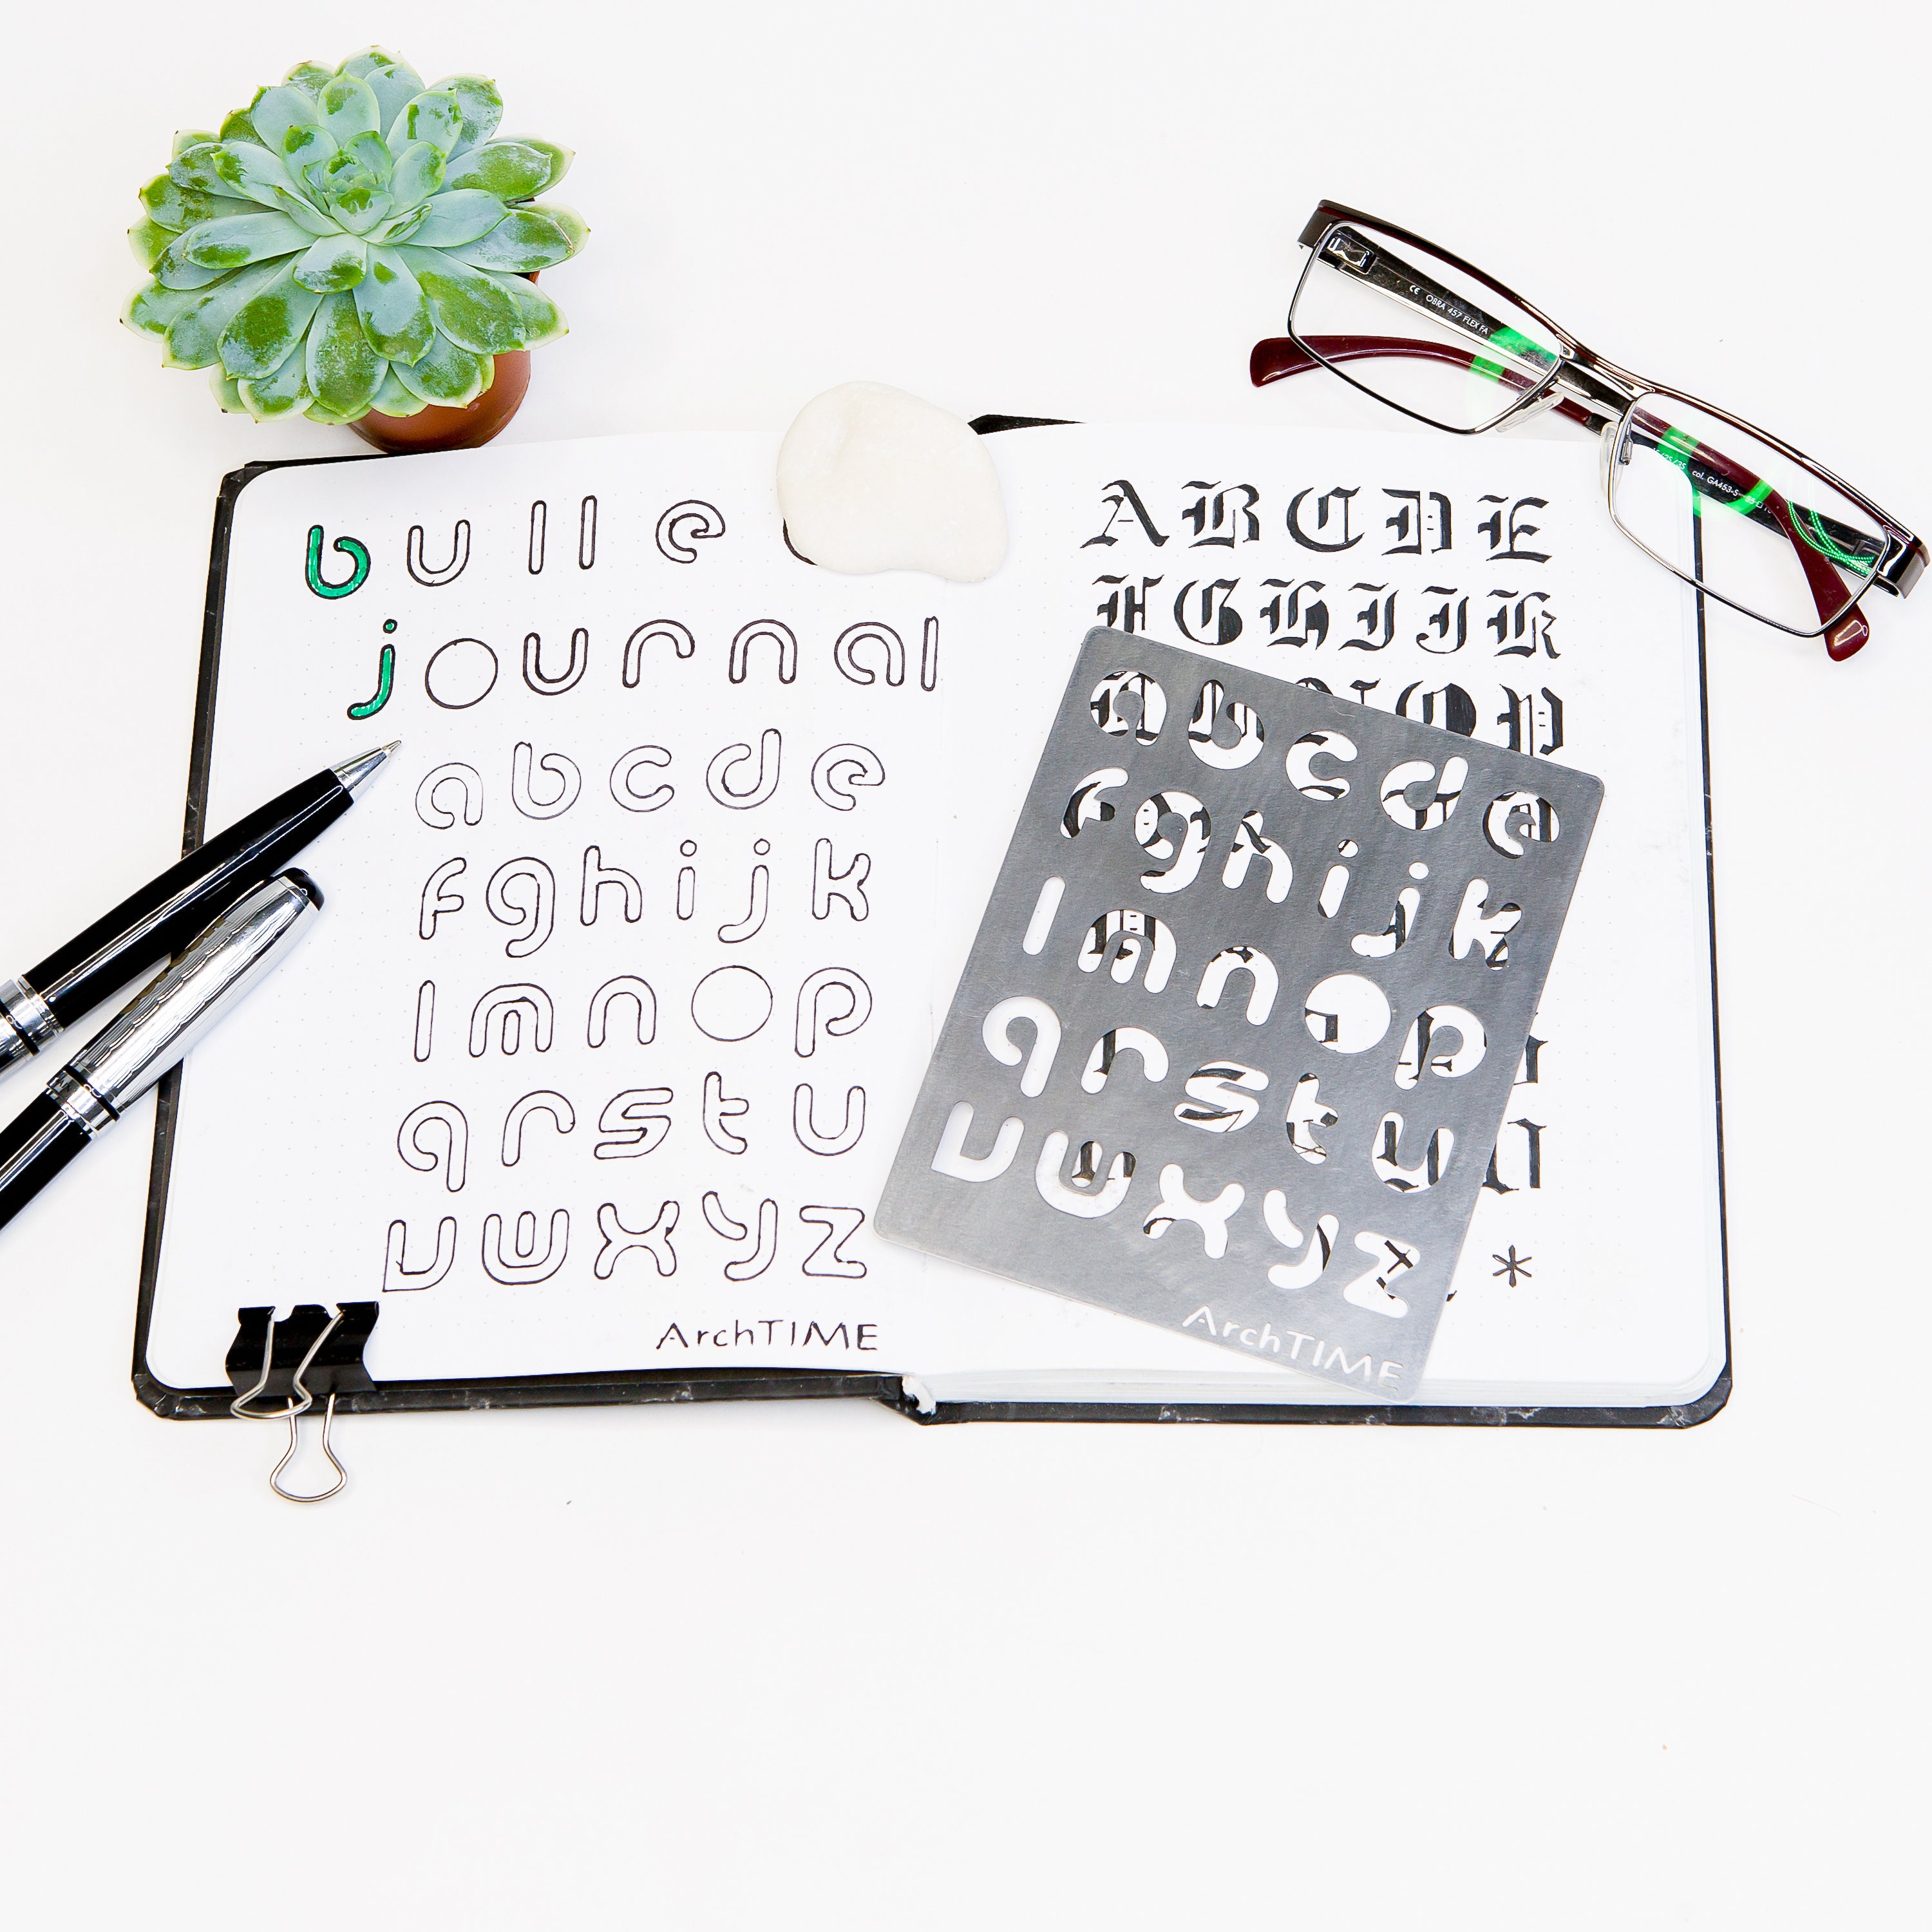 b u l l e
j o u r n a l
a b c d e
f g h i j k
l m n o p
q r s t u
v w x y z
ArchTIME
A B C D E
F G H I J K
O P
*
a b c d e
f g h i j k
l m n o p
q r s t u
v w x y z
ArchTIME
CE OBRA 457 FLEX FA
col. GA453-S